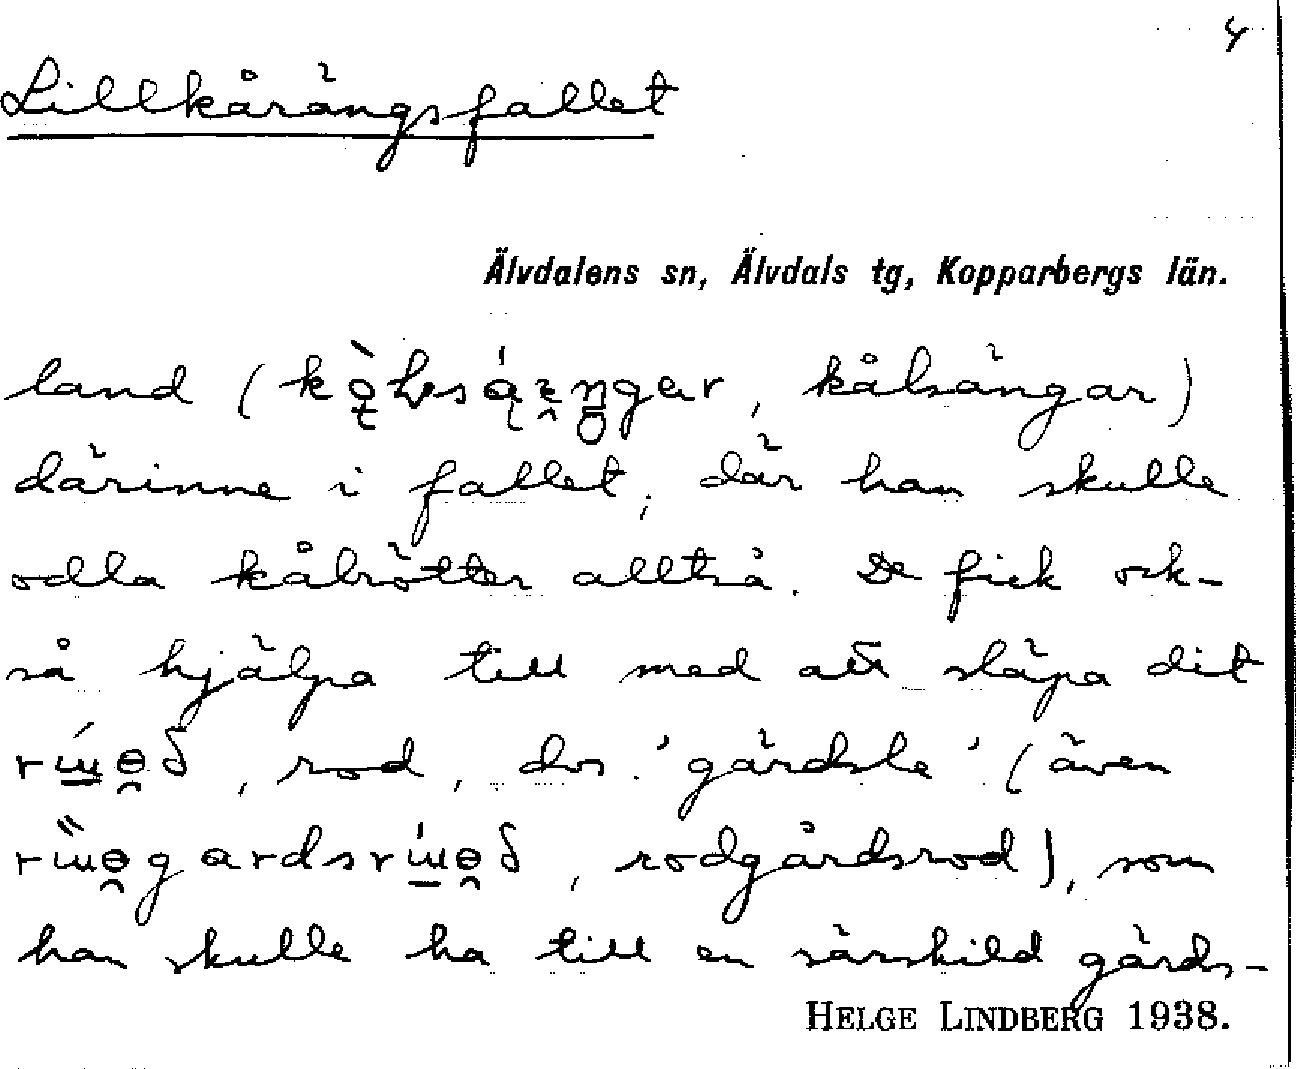 4
Lillkårängsfallet
Älvdalens sn, Älvdals tg, Kopparbergs län.
land ( , kålsängar)
därinne i fallet, där han skulle
odla kålrötter alltså. De fick ock-
så hjälpa till med att släpa dit
, rod, dvs. 'gärdsle' (även
, rodgårdsrod), som
han skulle ha till en särskild gärds-
HELGE LINDBERG 1938.